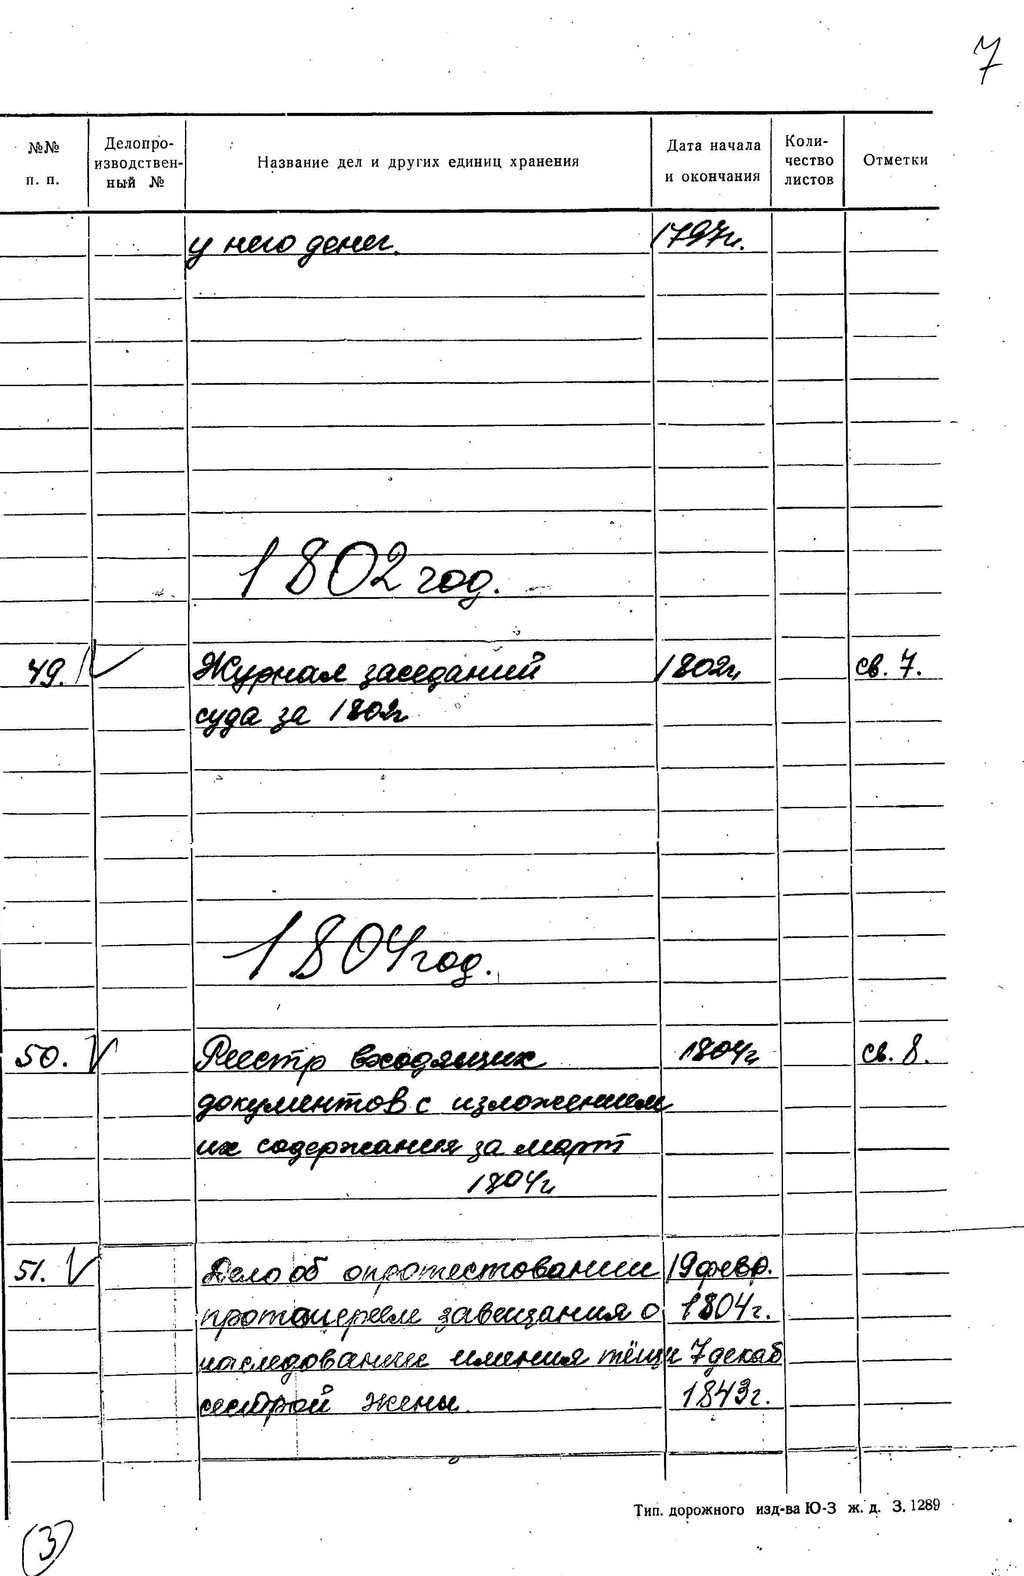 7
№№ п. п.
Делопро-
изводствен-
ный №
Название дел и других единиц хранения
Дата начала
и окончания
Коли-
чество
листов
Отметки
у него денег. 1797г.
1802 год.
49. Журнал заседаний 1802г. св. 7.
суда за 1802г
1804 год.
50. Реестр входящих 1804г св. 8.
документов с изложением
их содержания за март
1804г
51. Дело об опротестовании 19 февр.
протоиереем завещания о 1804г.
наследовании имения тёщи 7 декаб
сестрой жены. 1843г.
Тип. дорожного изд-ва Ю-З ж. д. З. 1289
3